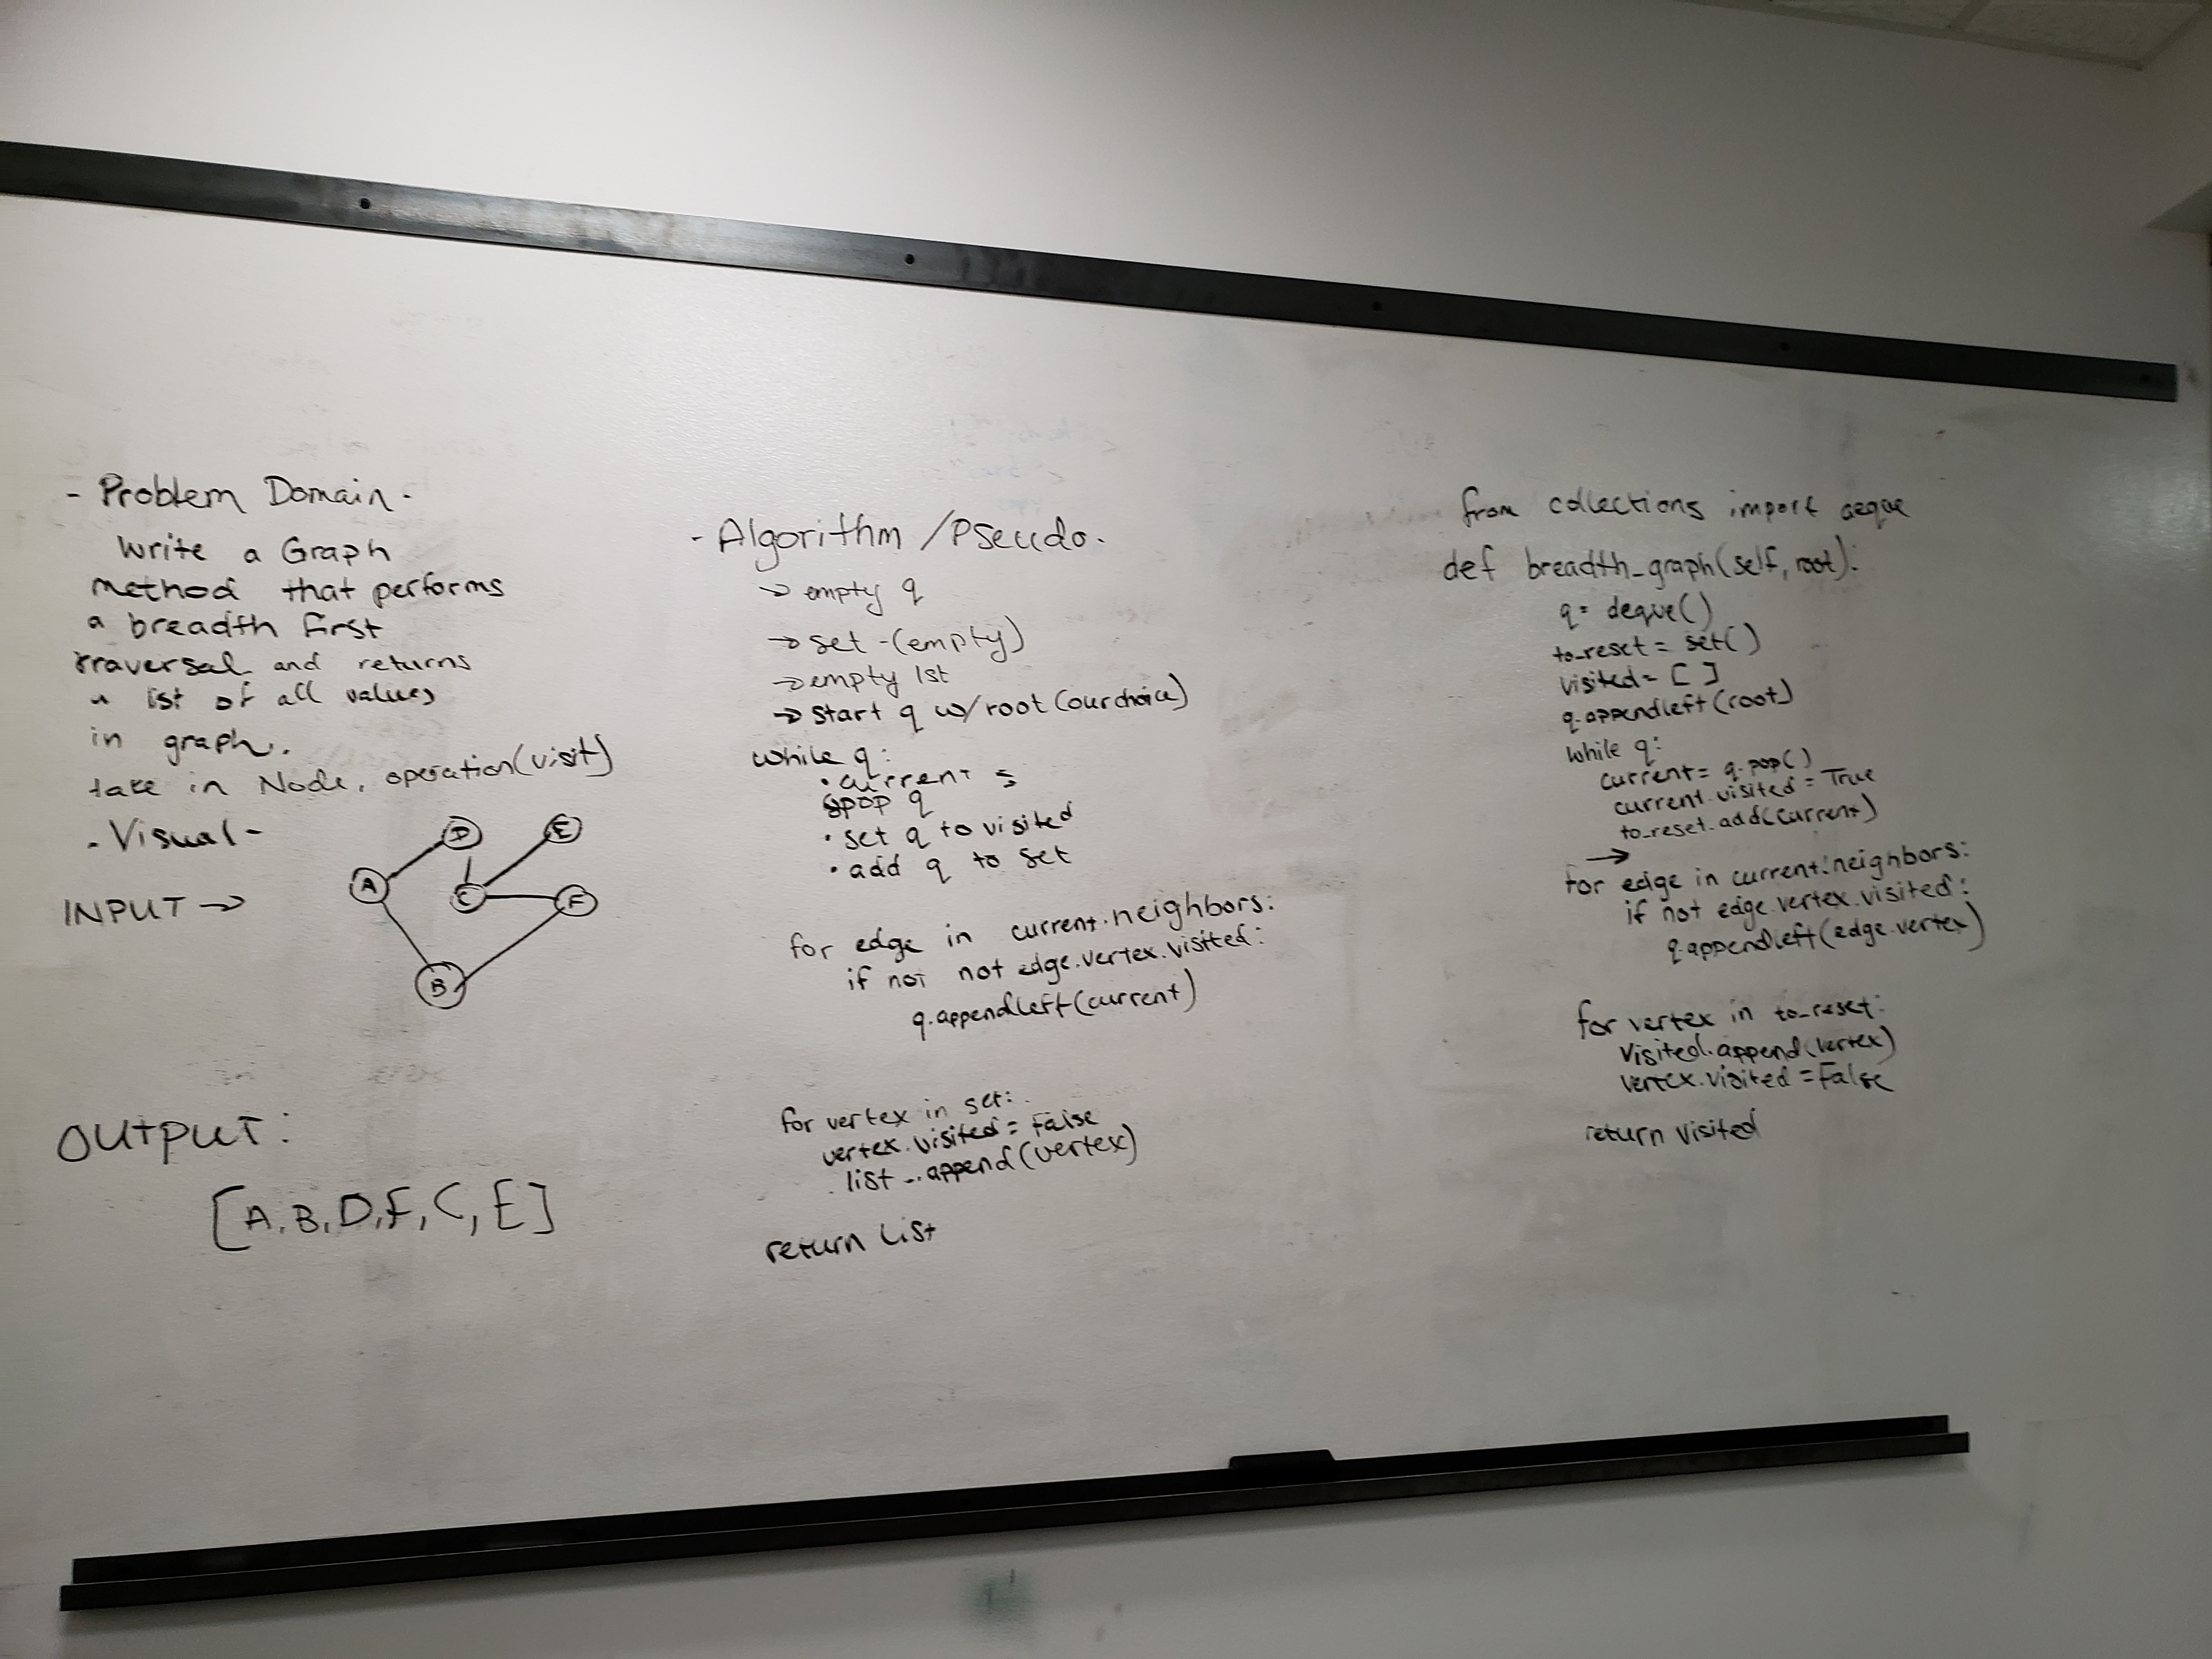 - Problem Domain -
Write a Graph
method that performs
a breadth first
traversal and returns
a list of all values
in graph.
take in Node, operation(visit)
- Visual -
INPUT →
D
E
A
C
F
B
OUTPUT:
[A, B, D, F, C, E]
- Algorithm / Pseudo.
→ empty q
→ set - (empty)
→ empty lst
→ start q w/ root (our choice)
while q:
• current =
pop q
• set q to visited
• add q to set
for edge in current.neighbors:
if not not edge.vertex.visited:
q.appendleft(current)
for vertex in set:
vertex.visited = False
list -.append(vertex)
return List
from collections import deque
def breadth_graph(self, root):
q = deque()
to_reset = set()
visited = []
q.appendleft(root)
while q:
current = q.pop()
current.visited = True
to_reset.add(current)
→
for edge in current.neighbors:
if not edge.vertex.visited:
q.appendleft(edge.vertex)
for vertex in to_reset:
visited.append(vertex)
vertex.visited = False
return visited